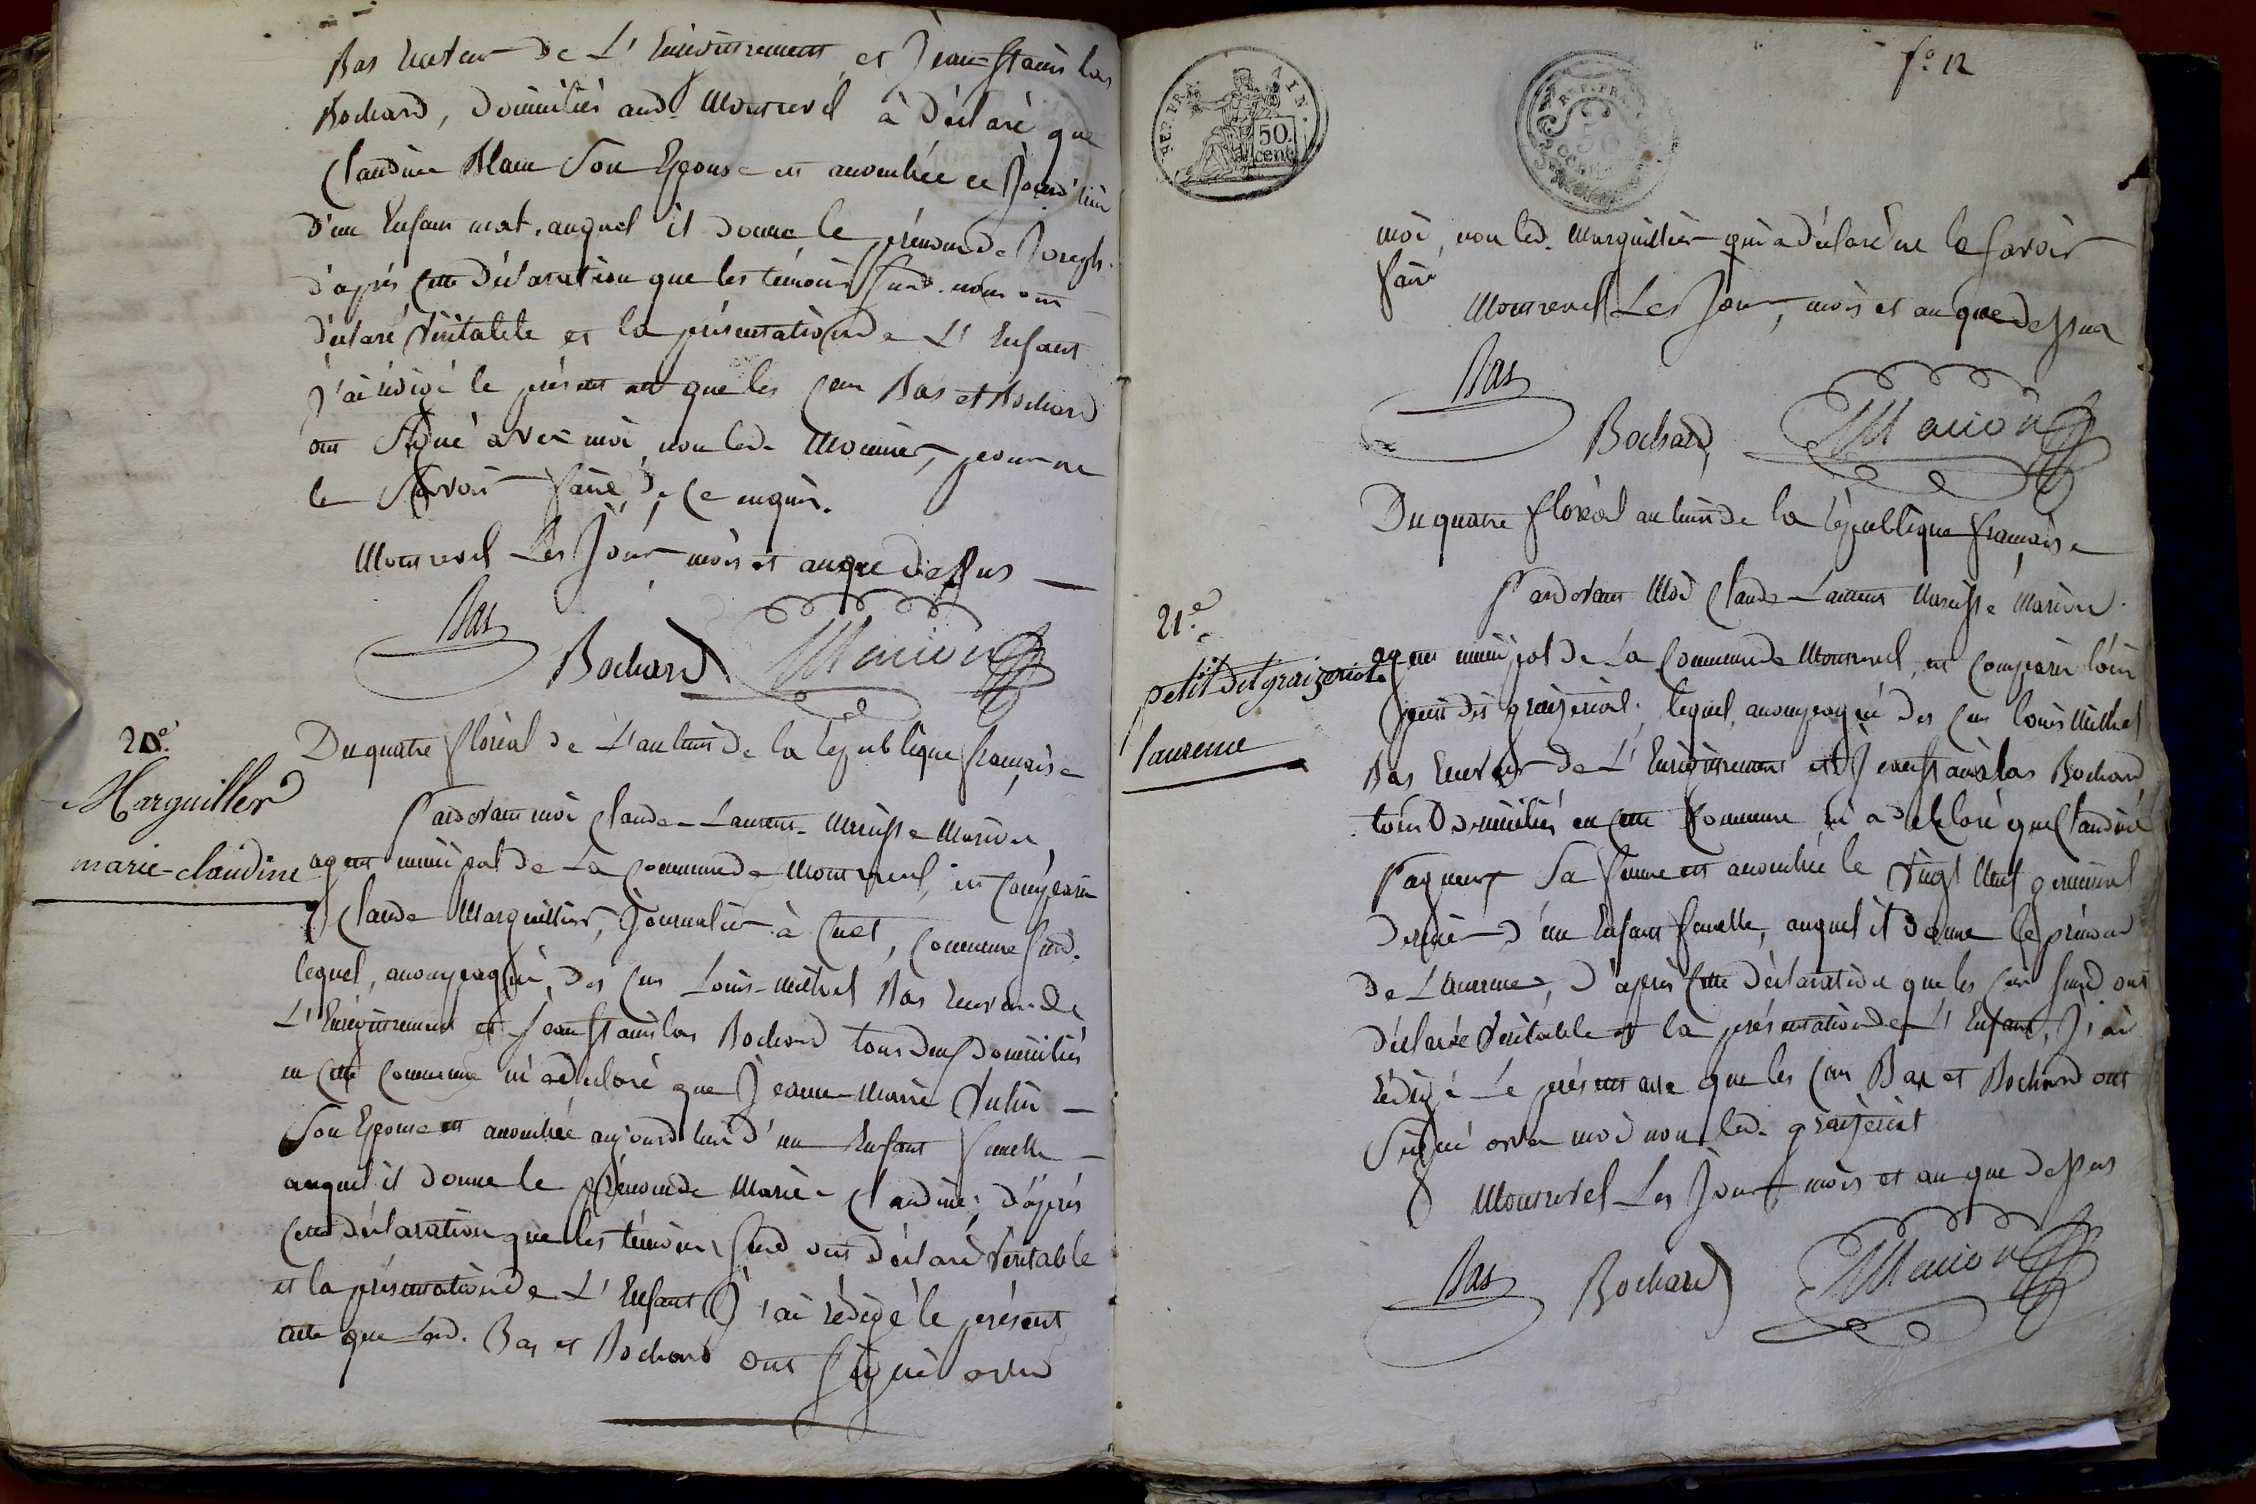 Bas Receveur de L'Enregistrement et Jean Stanislas
Bochard, Domiciliés aud. Montrevel à Déclaré que
Claudine Blanc Son Epouse est accouchée ce Jourd'hui
d'un Enfant mort, auquel il donne le prénom de Joseph.
d'après cette Déclaration que les témoins Susd. nous ont
déclaré Véritable et la présentation de L'Enfant
J'ai rédigé le présent acte que les Cens Bas et Bochard
ont Signé avec moi, non led. Monnier, pour ne
le Savoir faire, de ce enquis.
Montrevel Les Jour mois et an que dessus
Bas
Bochard
Marion
20e.
Marguiller
marie-claudine
Du quatre floréal de L'an huit de la République française
Pardevant moi Claude-Laurent-Marcisse Marion,
agent municipal de La Commune de Montrevel, est comparu
Claude Marguillier, Journalier à Cuet, Commune Susd.
lequel, accompagné, des Cens Louis-Michel Bas Receveur de
L'Enregistrement et Jean Stanislas Bochard tous deux Domiciliés
en cette Commune m'a déclaré que Jeanne-Marie
Son Epouse est accouchée aujourd'hui d'un Enfant femelle
auquel il donne le prénom de Marie-Claudine; d'après
cette déclaration que les témoins Susd ont déclaré Véritable
et la présentation de L'Enfant J'ai rédigé le présent
acte que Lesd. Bas et Bochard ont Signé avec
REP. FRA. AIN.
50
cent
REP. FRA.
50
CENT
fo. 12
moi, non led. Marguillier qui a déclaré ne le Savoir
faire
Montrevel Les Jour, mois et an que dessus
Bas
Bochard
Marion
21.e
petit dit graizeriat
laurence
Du quatre floréal an huit de la République française
Pardevant Moi Claude-Laurent Marcisse Marion.
agent municipal de La Commune de Montrevel, est comparu
petit dit graizeriat; lequel, accompagné des Cens Louis Michel
Bas Receveur de L'Enregistrement et Jean Stanislas Bochard
tous Domiciliés en cette Commune m'a déclaré que Claudine
Sa femme est accouchée le Vingt Neuf germinal
dernier d'un Enfant femelle, auquel il donne le prénom
de Laurence, d'après cette déclaration que les Cens Susd ont
déclarée Véritable et la présentation de L'Enfant, J'ai
rédigé Le présent acte que les Cens Bas et Bochard ont
Signé avec moi non led. graizeriat
Montrevel Les Jour mois et an que dessus
Bas
Bochard
Marion